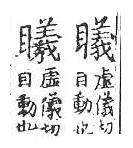 虛儀切
目動也
虛儀切
目動也